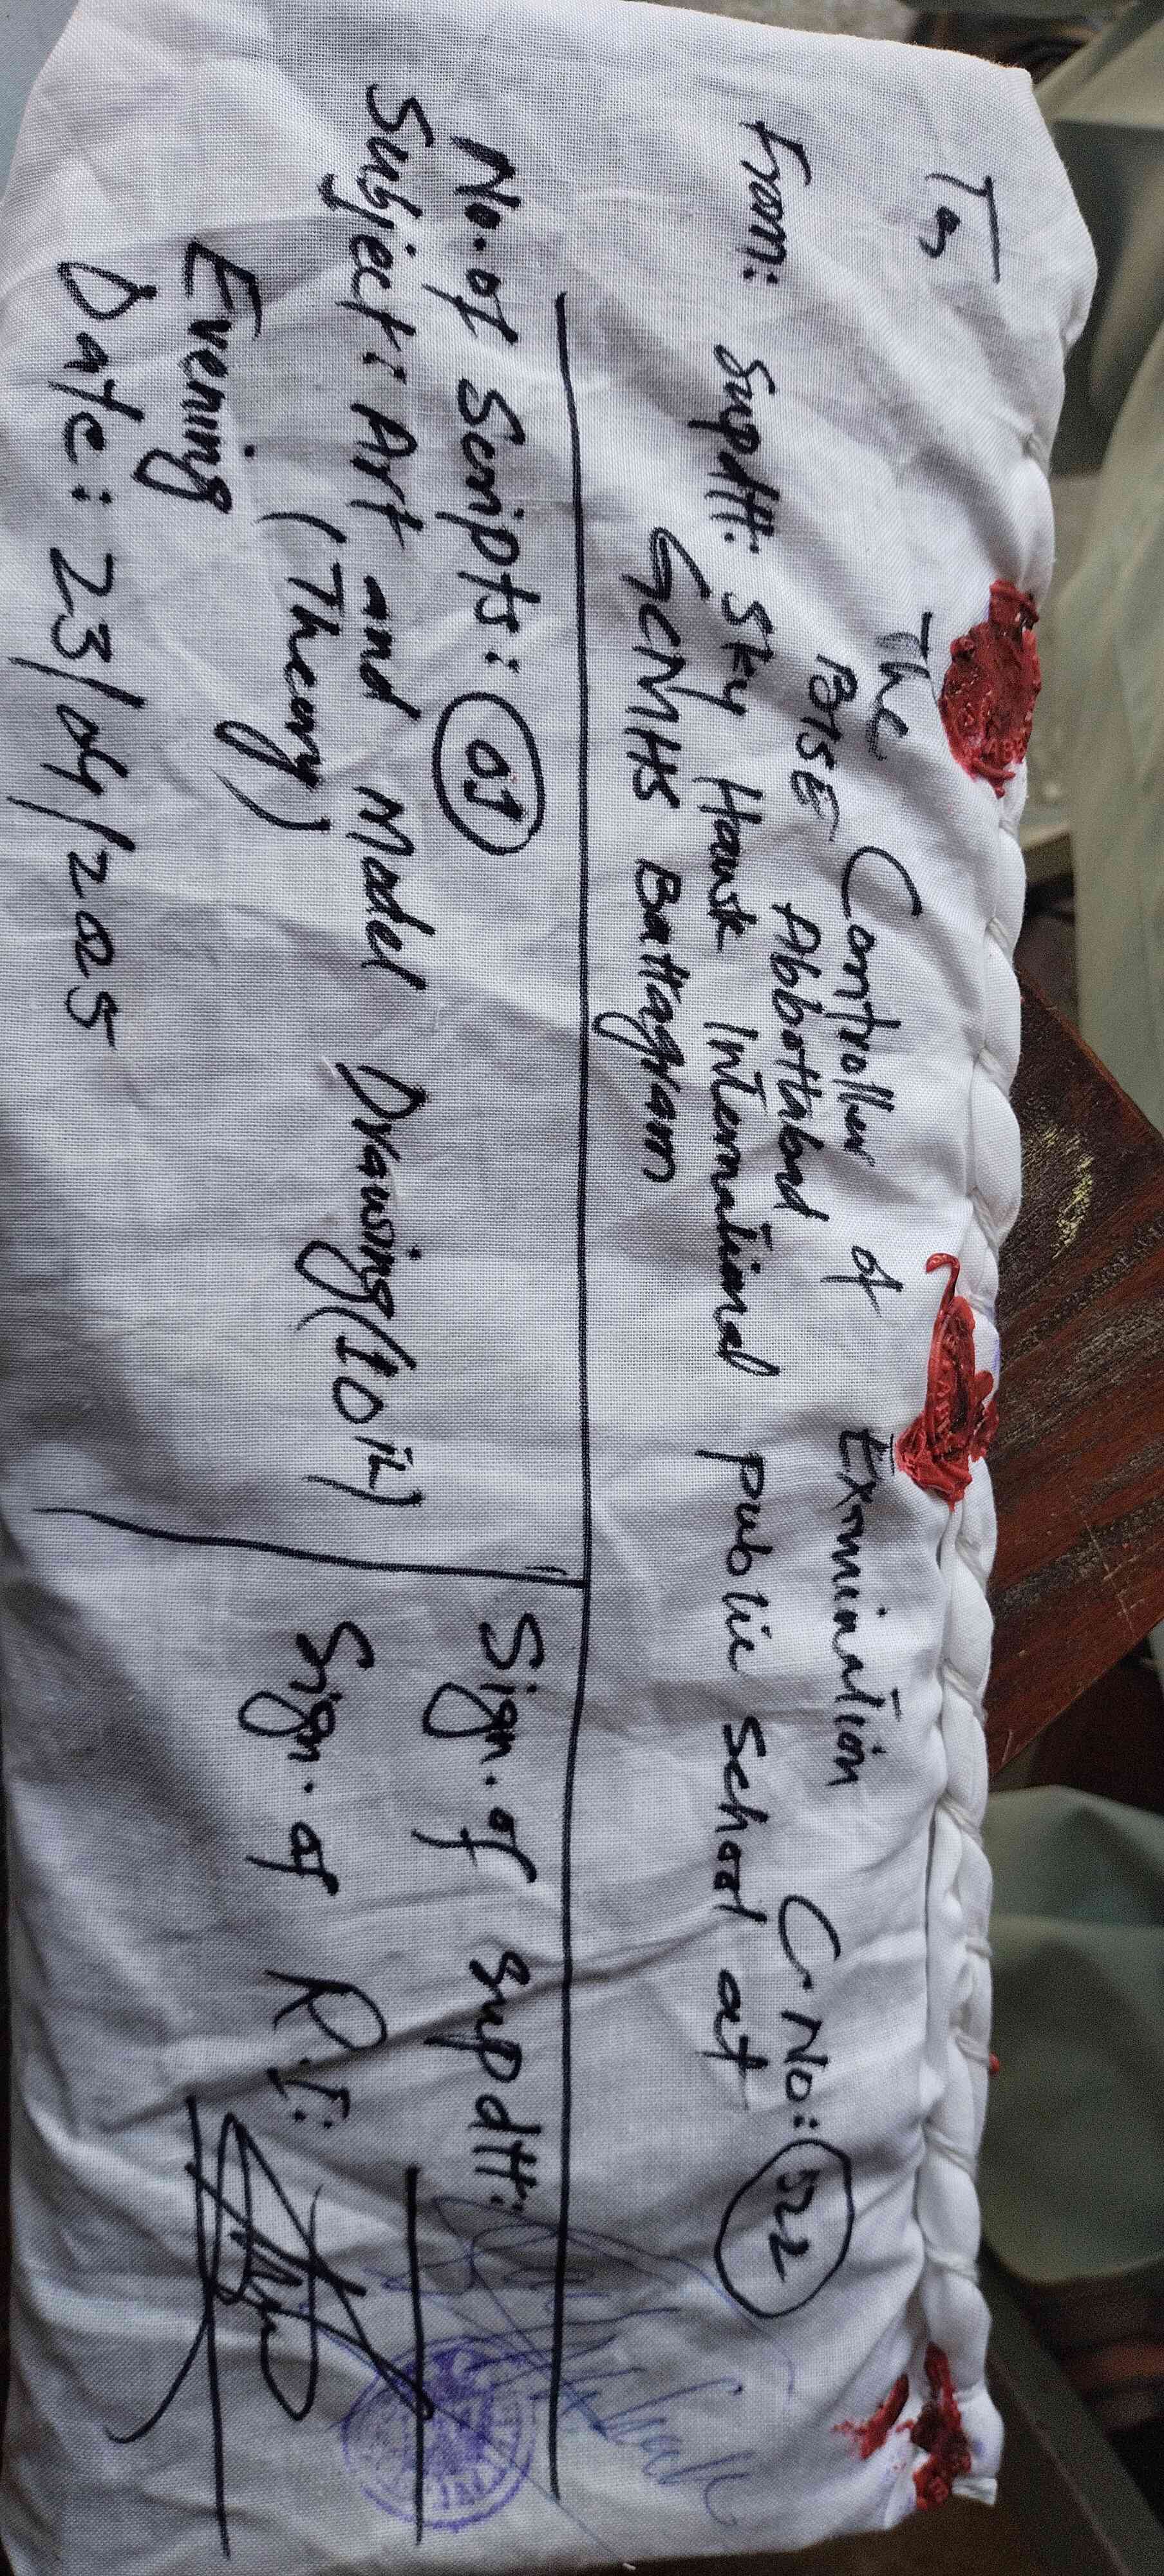 To,
The Controller of Examination
BISE Abbottabad C.No: 522
From: Supdtt: Sky Hawk International Public School at
GCMHS Battagram
No. of Scripts: 01
Sign. of Supdtt:
Subject: Art and Model Drawing (10th)
(Theory)
Sign. of R.I:
Evening
Date: 23/04/2025